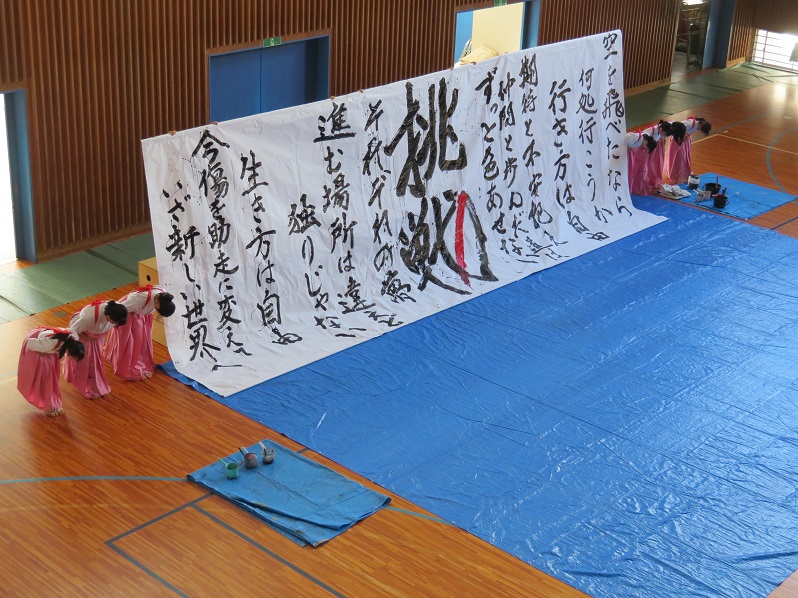 空を飛べたなら
何処行こうか
行き方は自由
期待と不安抱
仲間と歩んだ
ずっと色あせな
挑戦
それぞれの夢を
進む場所は違
独りじゃない
生き方は自由
今傷を助走に変えて
いざ新しい世界へ